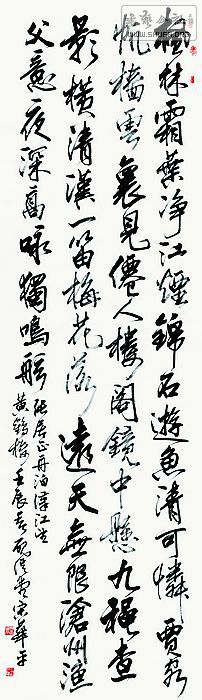 枫林霜葉净江煙錦石遊魚清可憐賈客
帆樯雲裏見僊人樓阁鏡中懸九穐查
影橫清漢一笛梅花落遠天無限滄州漁
父意夜深高咏獨鳴舷
張居正舟泊漢江望
黄鶴樓壬辰春宋華平